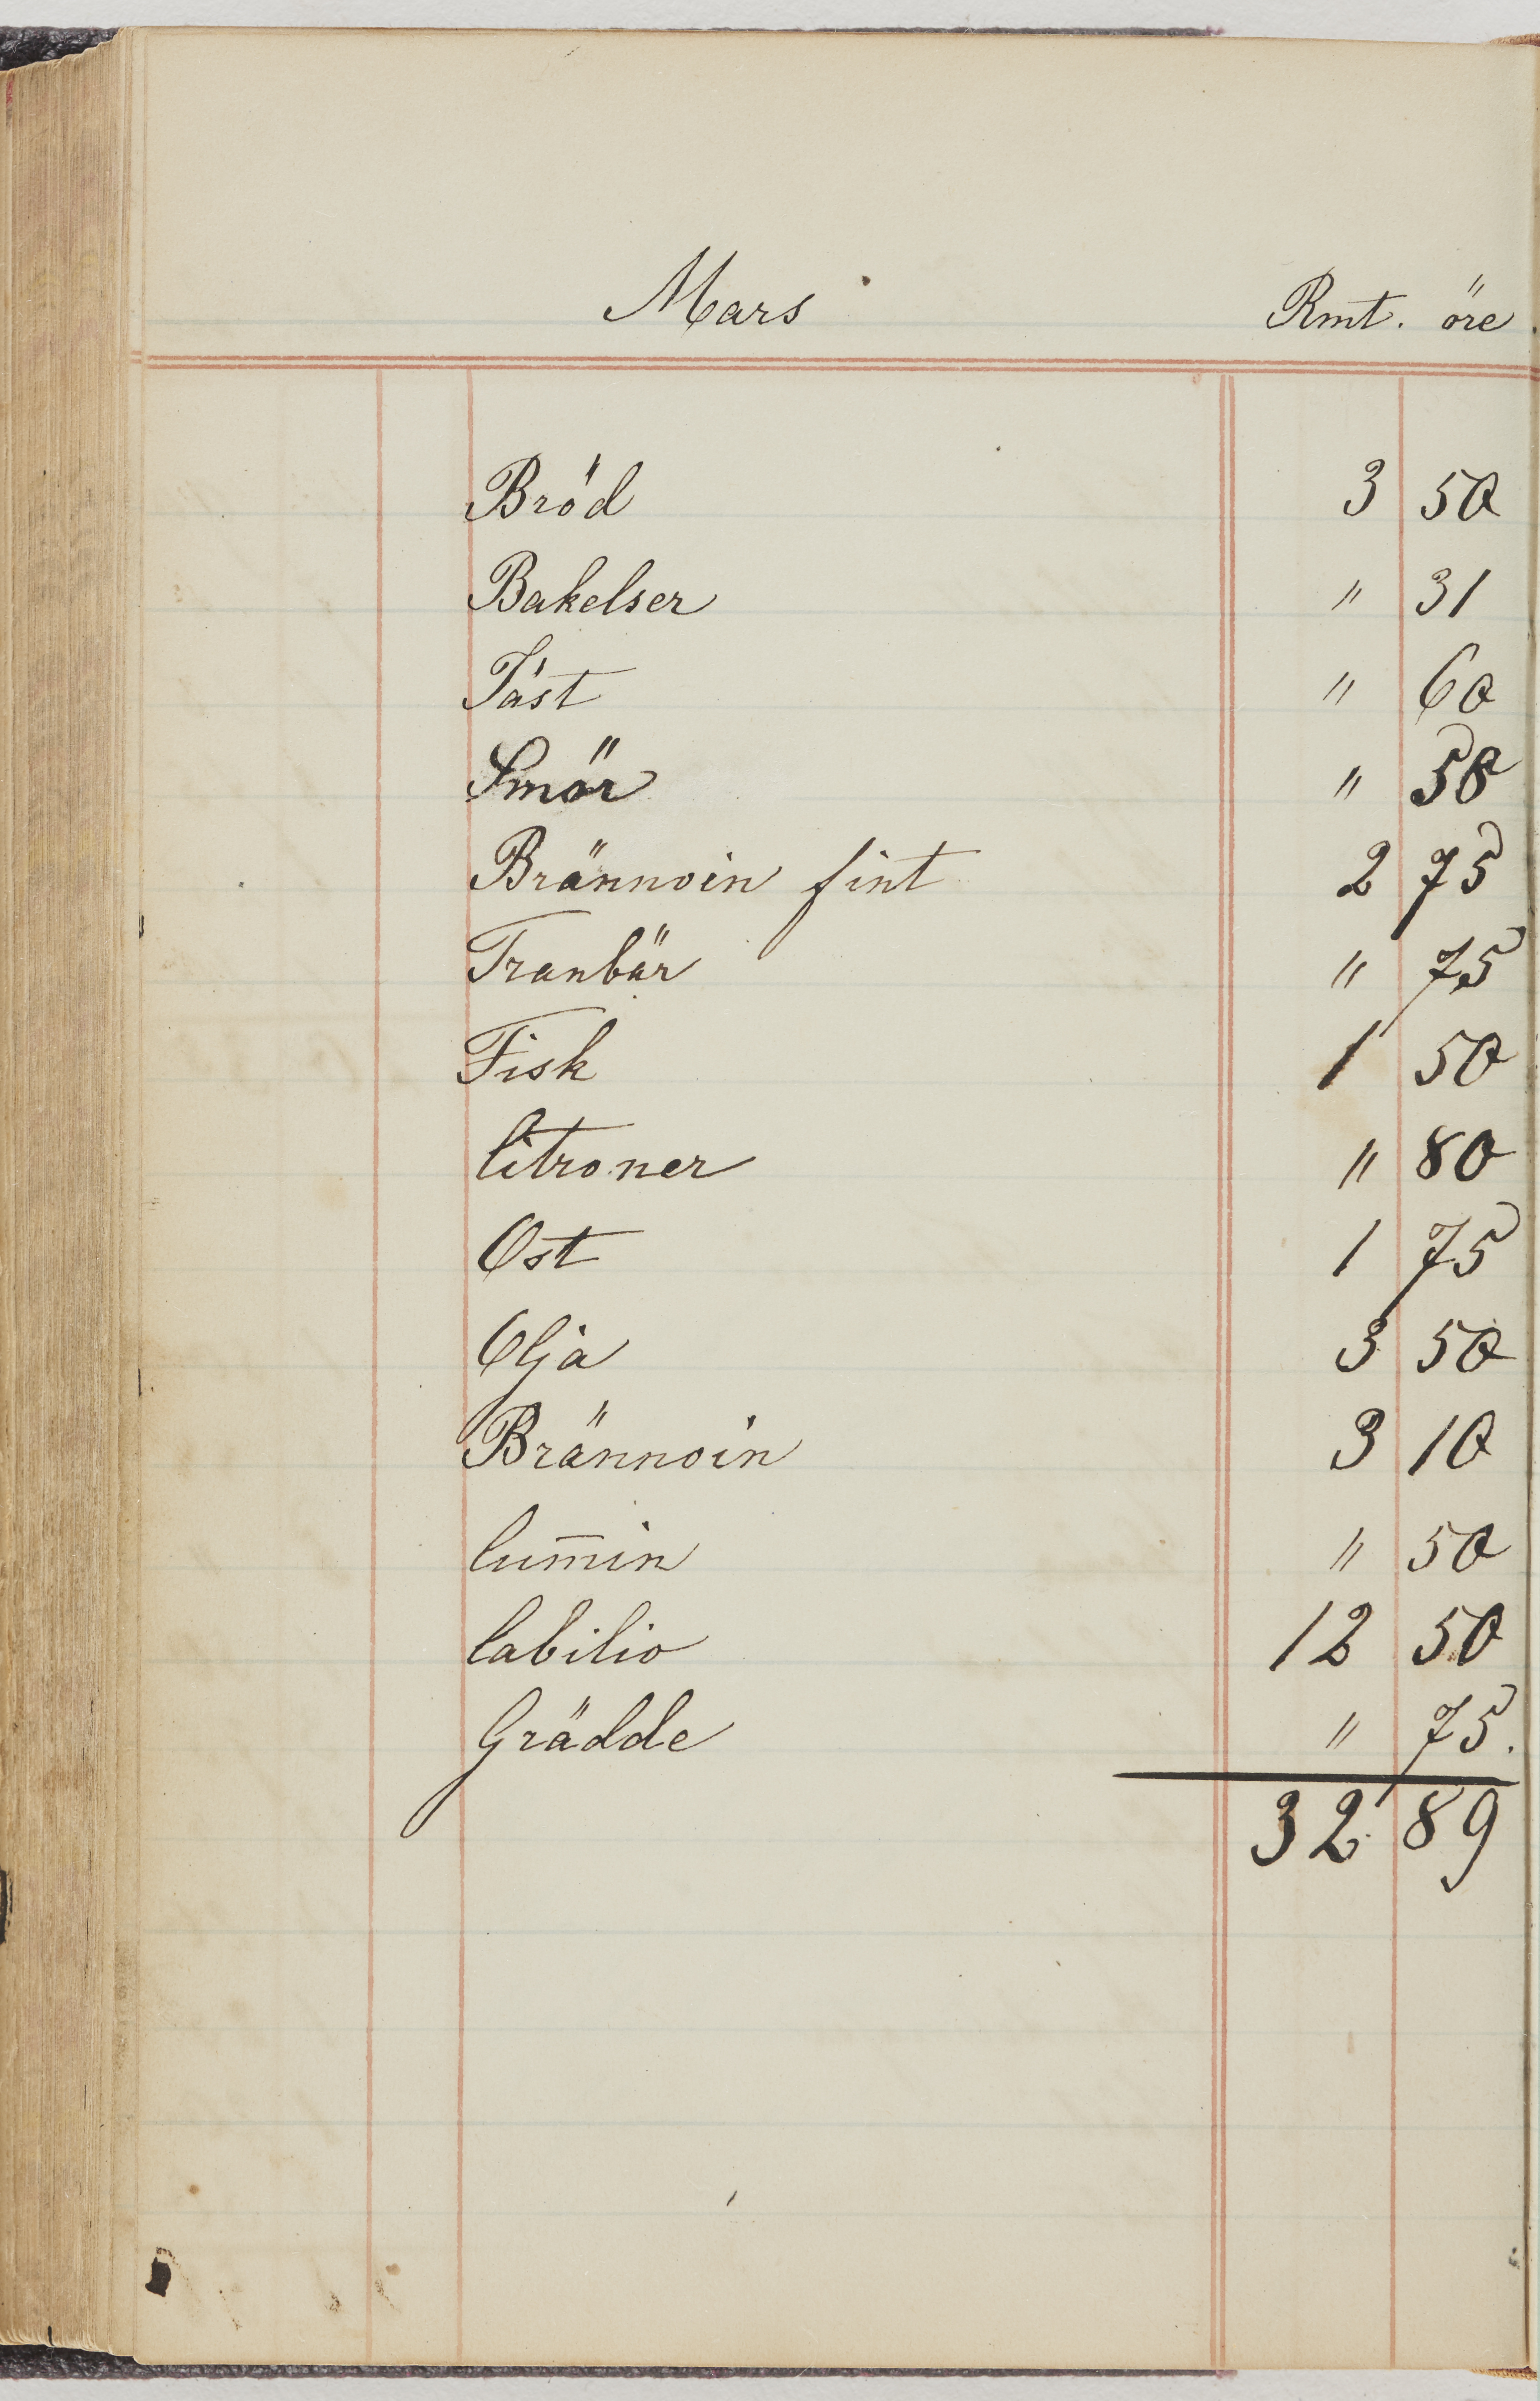 Mars Rmt. öre.
Bröd 3 50
Bakelser " 31
Jäst " 60
Smör " 58
Brännvin fint 2 75
Tranbär " 75
Fisk 1 50
Citroner " 80
Ost 1 75
Olja 3 50
Brännvin 3 10
Cum̄in " 50
Cabilio 12 50
Grädde " 75.
32 89